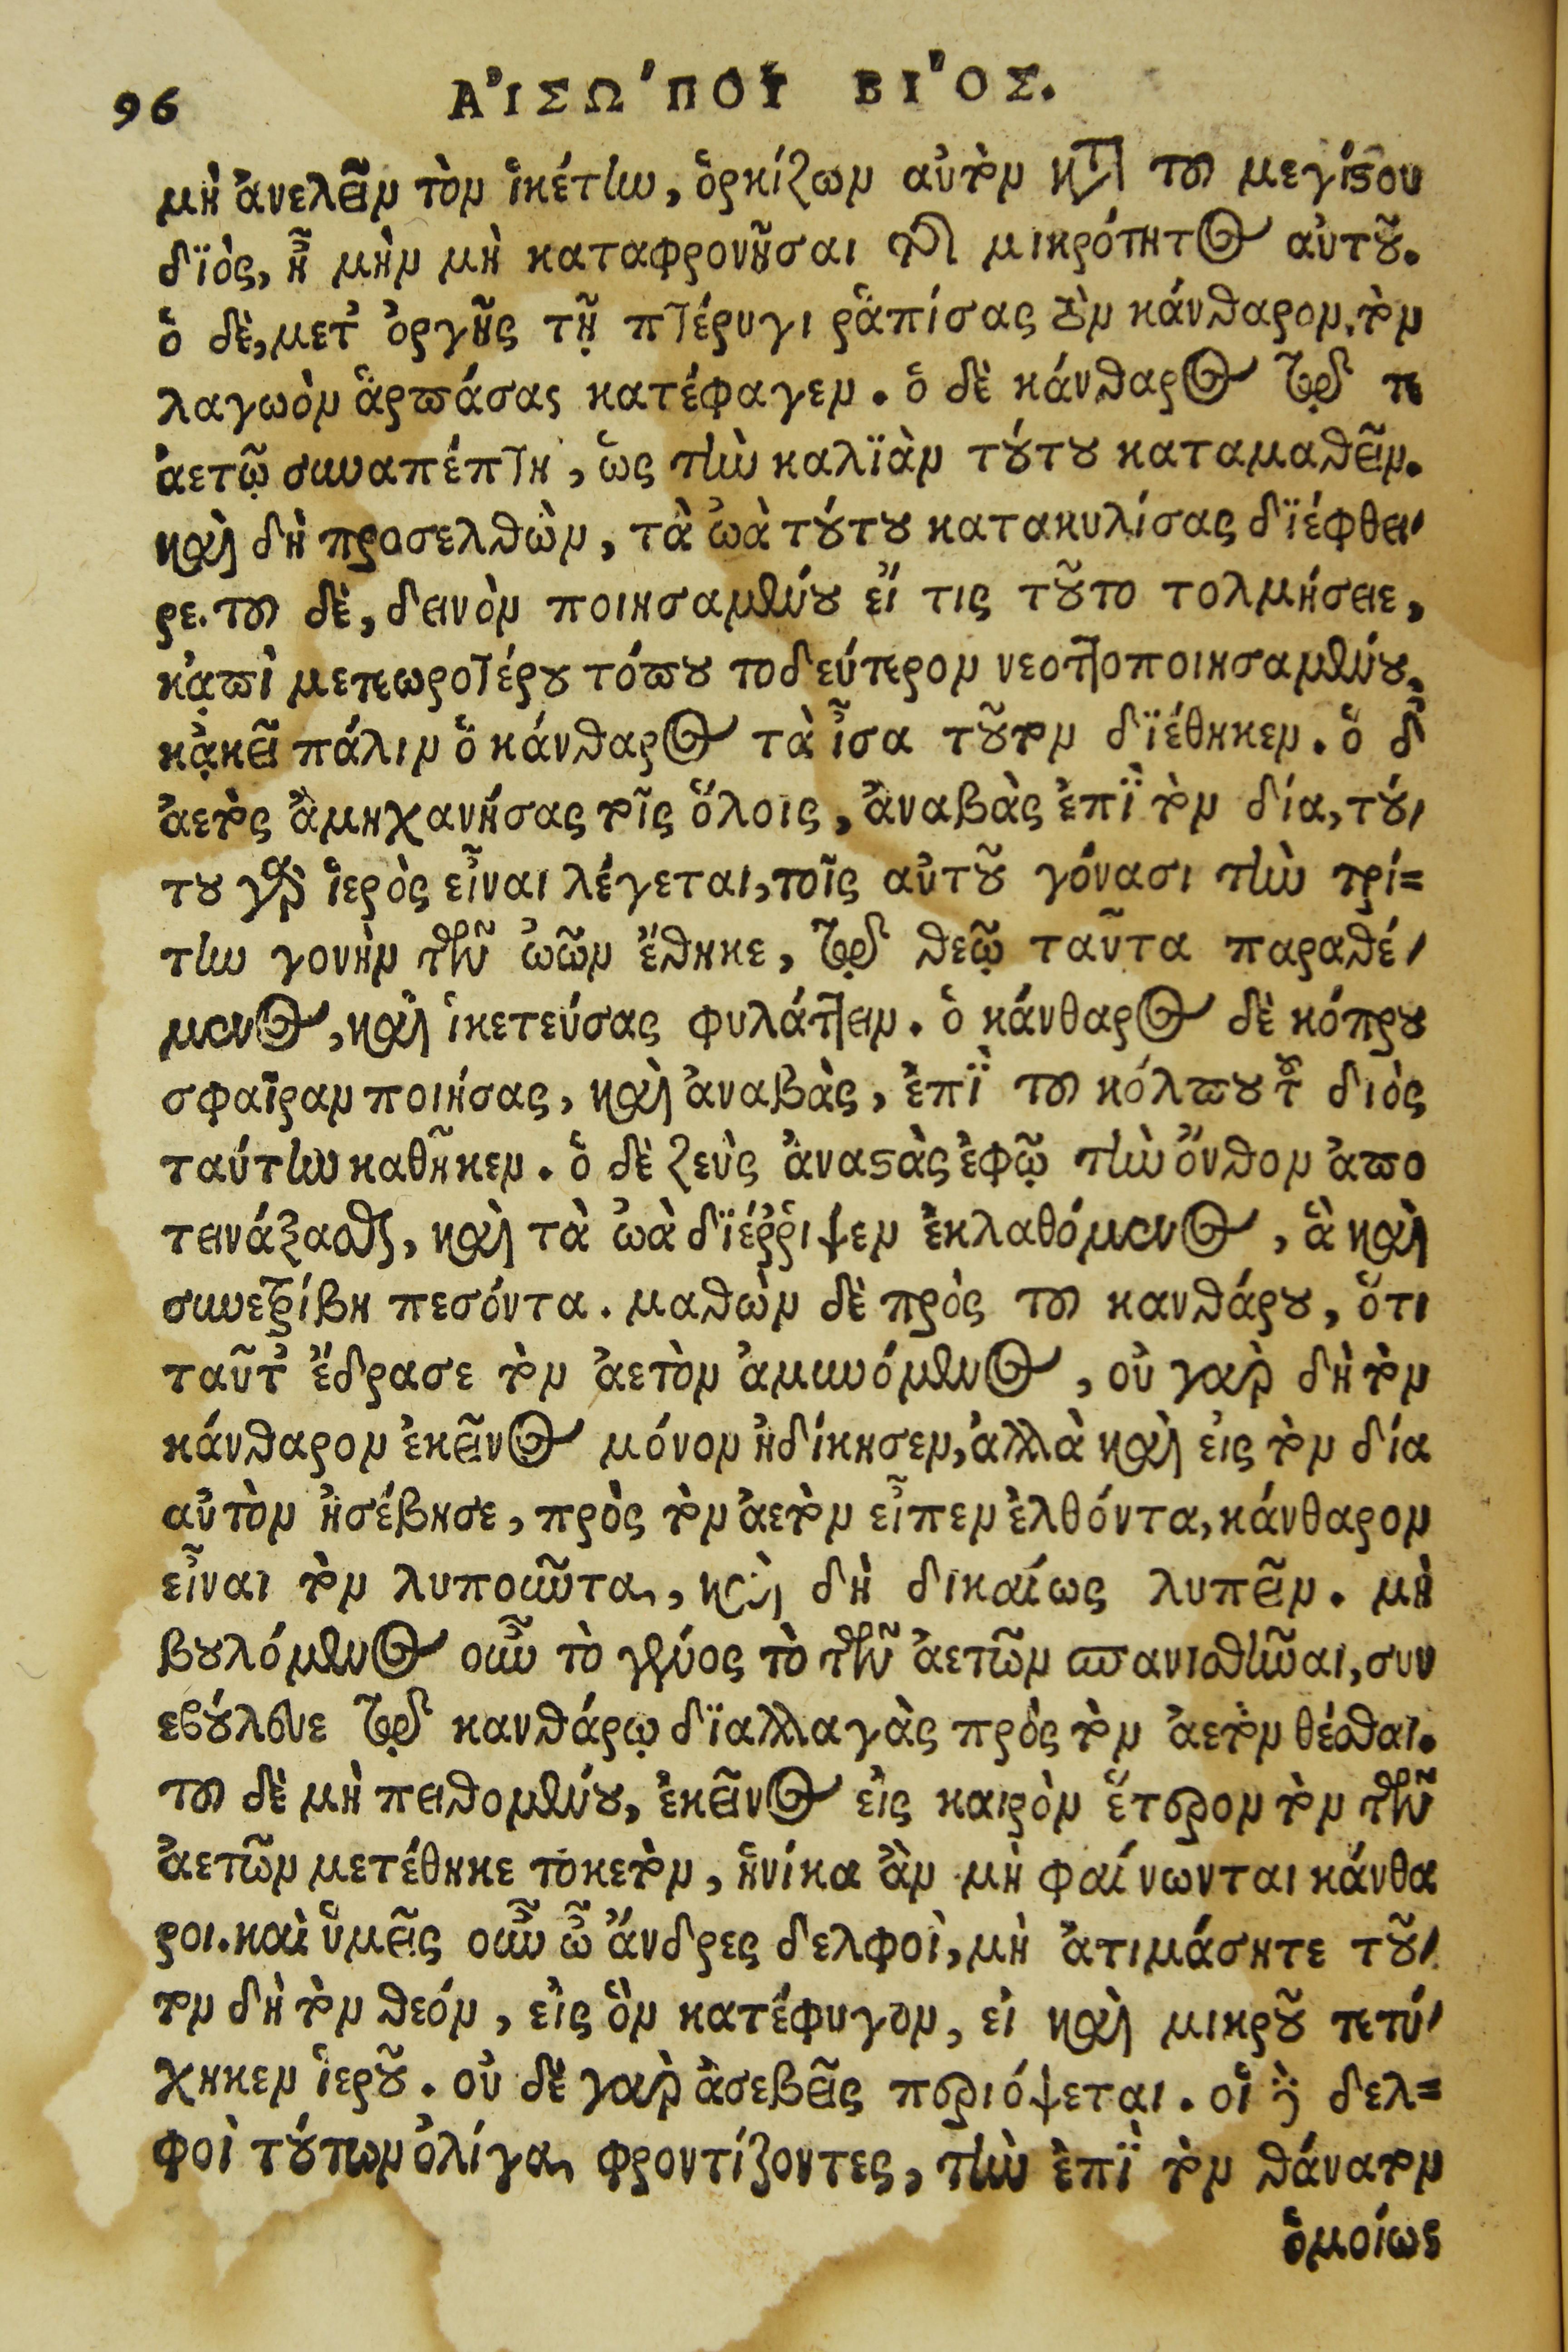 96 ΑἸΣΩΊΠΟΥ ΒΙΌΣ.
μὴ ἀνελεῖν τὸν ἱκέτην, ὁρκίζων αὐτὸν κατὰ τοῦ μεγίστου
διὸς, ἦ μὴν μὴ καταφρονῆσαι τῆς μικρότητος αὐτοῦ.
ὁ δὲ, μετ' ὀργῆς τῇ πτέρυγι ῥαπίσας τὸν κάνθαρον, τὸν
λαγωὸν ἁρπάσας κατέφαγεν. ὁ δὲ κάνθαρος τῷ τε
ἀετῷ συναπέπτη, ὡς τὴν καλϊὰν τούτου καταμαθεῖν.
καὶ δὴ προσελθὼν, τὰ ὠὰ τούτου κατακυλίσας διέφθει-
ρε. τοῦ δὲ, δεινὸν ποιησαμένου εἴ τις τοῦτο τολμήσειε,
κᾀπὶ μετεωροτέρου τόπου τὸ δεύτερον νεοττοποιησαμένου,
κᾀκεῖ πάλιν ὁ κάνθαρος τὰ ἶσα τοῦτον διέθηκεν. ὁ δ'
ἀετὸς ἀμηχανήσας τοῖς ὅλοις, ἀναβὰς ἐπὶ τὸν δία, τού-
του γὰρ ἱερὸς εἶναι λέγεται, τοῖς αὐτοῦ γόνασι τὴν τρί=
την γονὴν τῶν ὠῶν ἔθηκε, τῷ θεῷ ταῦτα παραθέ-
μενος, καὶ ἱκετεύσας φυλάττειν. ὁ κάνθαρος δὲ κόπρου
σφαῖραν ποιήσας, καὶ ἀναβὰς, ἐπὶ τοῦ κόλπου τοῦ διὸς
ταύτην καθῆκεν. ὁ δὲ ζεὺς ἀναστὰς ἐφ' ᾧ τὴν ὄνθον ἀπο
τεινάξασθαι, καὶ τὰ ὠὰ διέῤῥιψεν ἐκλαθόμενος, ἃ καὶ
συνετρίβη πεσόντα. μαθὼν δὲ πρὸς τοῦ κανθάρου, ὅτι
ταῦτ' ἔδρασε τὸν ἀετὸν ἀμυνόμενος, οὐ γὰρ δὴ τὸν
κάνθαρον ἐκεῖνος μόνον ἠδίκησεν, ἀλλὰ καὶ εἰς τὸν δία
αὐτὸν ἠσέβησε, πρὸς τὸν ἀετὸν εἶπεν ἐλθόντα, κάνθαρον
εἶναι τὸν λυποῦντα, καὶ δὴ δικαίως λυπεῖν. μὴ
βουλόμενος οὖν τὸ γένος τὸ τῶν ἀετῶν σπανισθῆναι, συν
εβούλευε τῷ κανθάρῳ διαλλαγὰς πρὸς τὸν ἀετὸν θέσθαι.
τοῦ δὲ μὴ πειθομένου, ἐκεῖνος εἰς καιρὸν ἕτερον τὸν τῶν
ἀετῶν μετέθηκε τοκετὸν, ἡνίκα ἂν μὴ φαίνωνται κάνθα
ροι. καὶ ὑμεῖς οὖν ὦ ἄνδρες δελφοὶ, μὴ ἀτιμάσητε τοῦ-
τον δὴ τὸν θεόν, εἰς ὃν κατέφυγον, εἰ καὶ μικροῦ τετύ-
χηκεν ἱεροῦ. οὐ δὲ γὰρ ἀσεβεῖς περιόψεται. οἱ δὲ δελ=
φοὶ τούτων ὀλίγα φροντίζοντες, τὴν ἐπὶ τὸν θάνατον
ὁμοίως